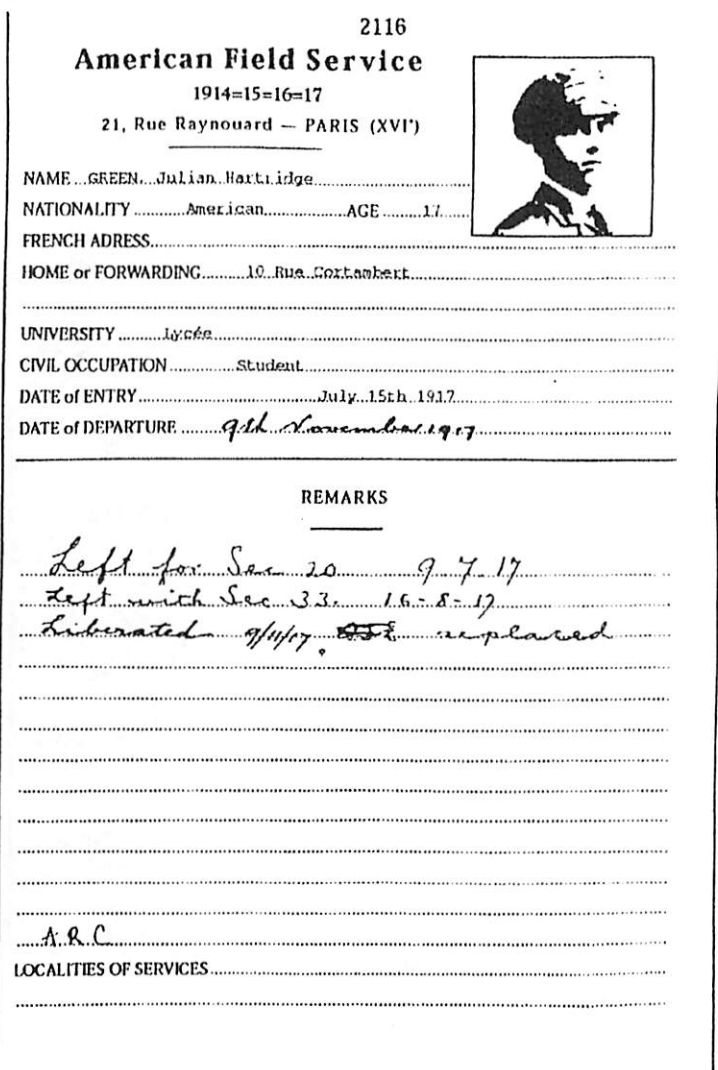 2116
American Field Service
1914=15=16=17
21, Rue Raynouard — PARIS (XVIe)
NAME GREEN, Julian Hartridge
NATIONALITY American AGE 17
FRENCH ADRESS
HOME or FORWARDING 10 Rue Cortambert
UNIVERSITY Lycée
CIVIL OCCUPATION Student
DATE of ENTRY July 15th 1917
DATE of DEPARTURE 9th November 1917
REMARKS
Left for Sec 20 9-7-17
Left with Sec 33. 16-8-17
Liberated 9/11/17. replaced
A.R.C
LOCALITIES OF SERVICES